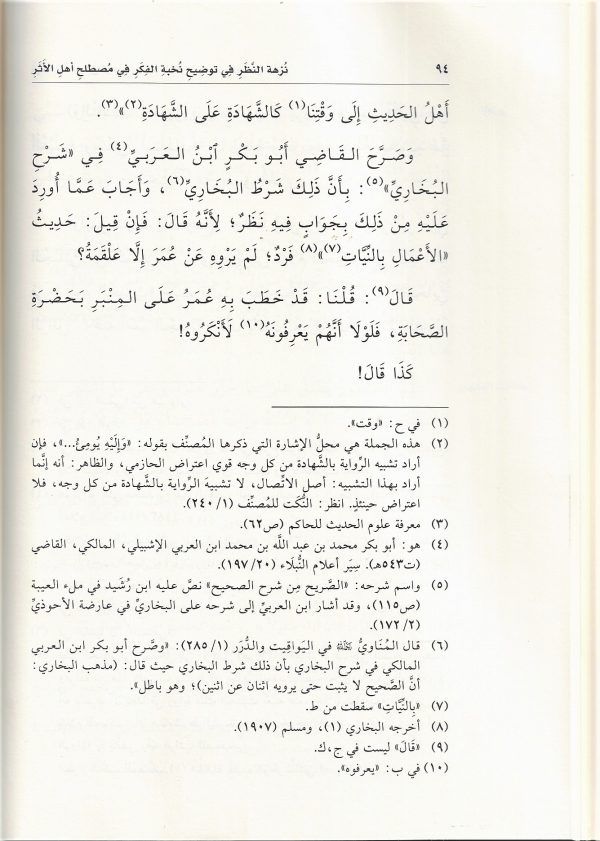 ٩٤ نُزهة النَّظَرِ فِي توضيحِ نُخبةِ الفِكَرِ فِي مُصطلحِ أهلِ الأَثَرِ
أَهْلُ الحَدِيثِ إِلَى وَقْتِنَا(١) كَالشَّهَادَةِ عَلَى الشَّهَادَةِ(٢)»(٣).
وَصَرَّحَ القَاضِي أَبُو بَكْرٍ ٱبْنُ العَرَبِيِّ(٤) فِي «شَرْحِ
البُخَارِيِّ»(٥): بِأَنَّ ذَلِكَ شَرْطُ البُخَارِيِّ(٦)، وَأَجَابَ عَمَّا أُورِدَ
عَلَيْهِ مِنْ ذَلِكَ بِجَوَابٍ فِيهِ نَظَرٌ؛ لِأَنَّهُ قَالَ: فَإِنْ قِيلَ: حَدِيثُ
«الأَعْمَالِ بِالنِّيَّاتِ(٧)»(٨) فَرْدٌ؛ لَمْ يَرْوِهِ عَنْ عُمَرَ إِلَّا عَلْقَمَةُ؟
قَالَ(٩): قُلْنَا: قَدْ خَطَبَ بِهِ عُمَرُ عَلَى المِنْبَرِ بَحَضْرَةِ
الصَّحَابَةِ، فَلَوْلَا أَنَّهُمْ يَعْرِفُونَهُ(١٠) لَأَنْكَرُوهُ!
كَذَا قَالَ!
(١) في ح: «وقت».
(٢) هذه الجملة هي محلُّ الإشارة التي ذكرها المُصنِّف بقوله: «وَإِلَيْهِ يُومِئُ...»، فإن
أراد تشبيه الرِّواية بالشَّهادة من كل وجه قوي اعتراض الحازمي، والظاهر: أنه إنَّما
أراد بهذا التشبيه: أصل الاتِّصال، لا تشبيهَ الرِّواية بالشَّهادة من كل وجه، فلا
اعتراض حينئذٍ. انظر: النُّكَت للمُصنِّف (١/ ٢٤٠).
(٣) معرفة علوم الحديث للحاكم (ص٦٢).
(٤) هو: أبو بكر محمد بن عبد اللَّه بن محمد ابن العربي الإشبيلي، المالكي، القاضي
(ت٥٤٣هـ). سِيَر أعلام النُّبلَاء (٢٠/ ١٩٧).
(٥) واسم شرحه: «الصَّريح مِن شرح الصحيح» نصَّ عليه ابن رُشَيد في ملء العيبة
(ص١١٥)، وقد أشار ابن العربيِّ إلى شرحه على البخاريِّ في عارضة الأحوذيِّ
(٢/ ١٧٢).
(٦) قال المُنَاوِيُّ رَحِمَهُ اللَّهُ في اليَوَاقِيت والدُّرَر (١/ ٢٨٥): «وصَّرح أبو بكر ابن العربي
المالكي في شرح البخاري بأن ذلك شرط البخاري حيث قال: (مذهب البخاري:
أنَّ الصَّحيح لا يثبت حتى يرويه اثنان عن اثنين)؛ وهو باطل».
(٧) «بِالنِّيَّاتِ» سقطت من ط.
(٨) أخرجه البخاري (١)، ومسلم (١٩٠٧).
(٩) «قَالَ» ليست في ج،ك.
(١٠) في ب: «يعرفوه».